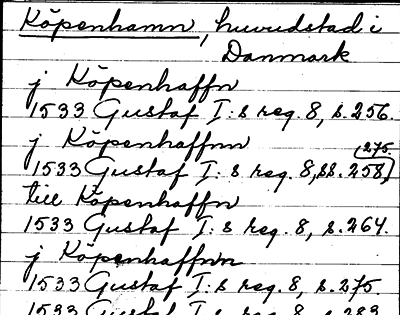 Köpenhamn, huvudstad i
Danmark
j Köpenhaffn
1533 Gustaf I:s reg. 8, s. 256.
j Köpenhaffnn
275
1533 Gustaf I:s reg. 8, ss. 258,
till Köpenhaffn
1533 Gustaf I:s reg. 8, s. 264.
j Köpenhaffnn
1533 Gustaf I:s reg. 8, s. 275.
1533 Gustaf I:s reg. 8, s. 283